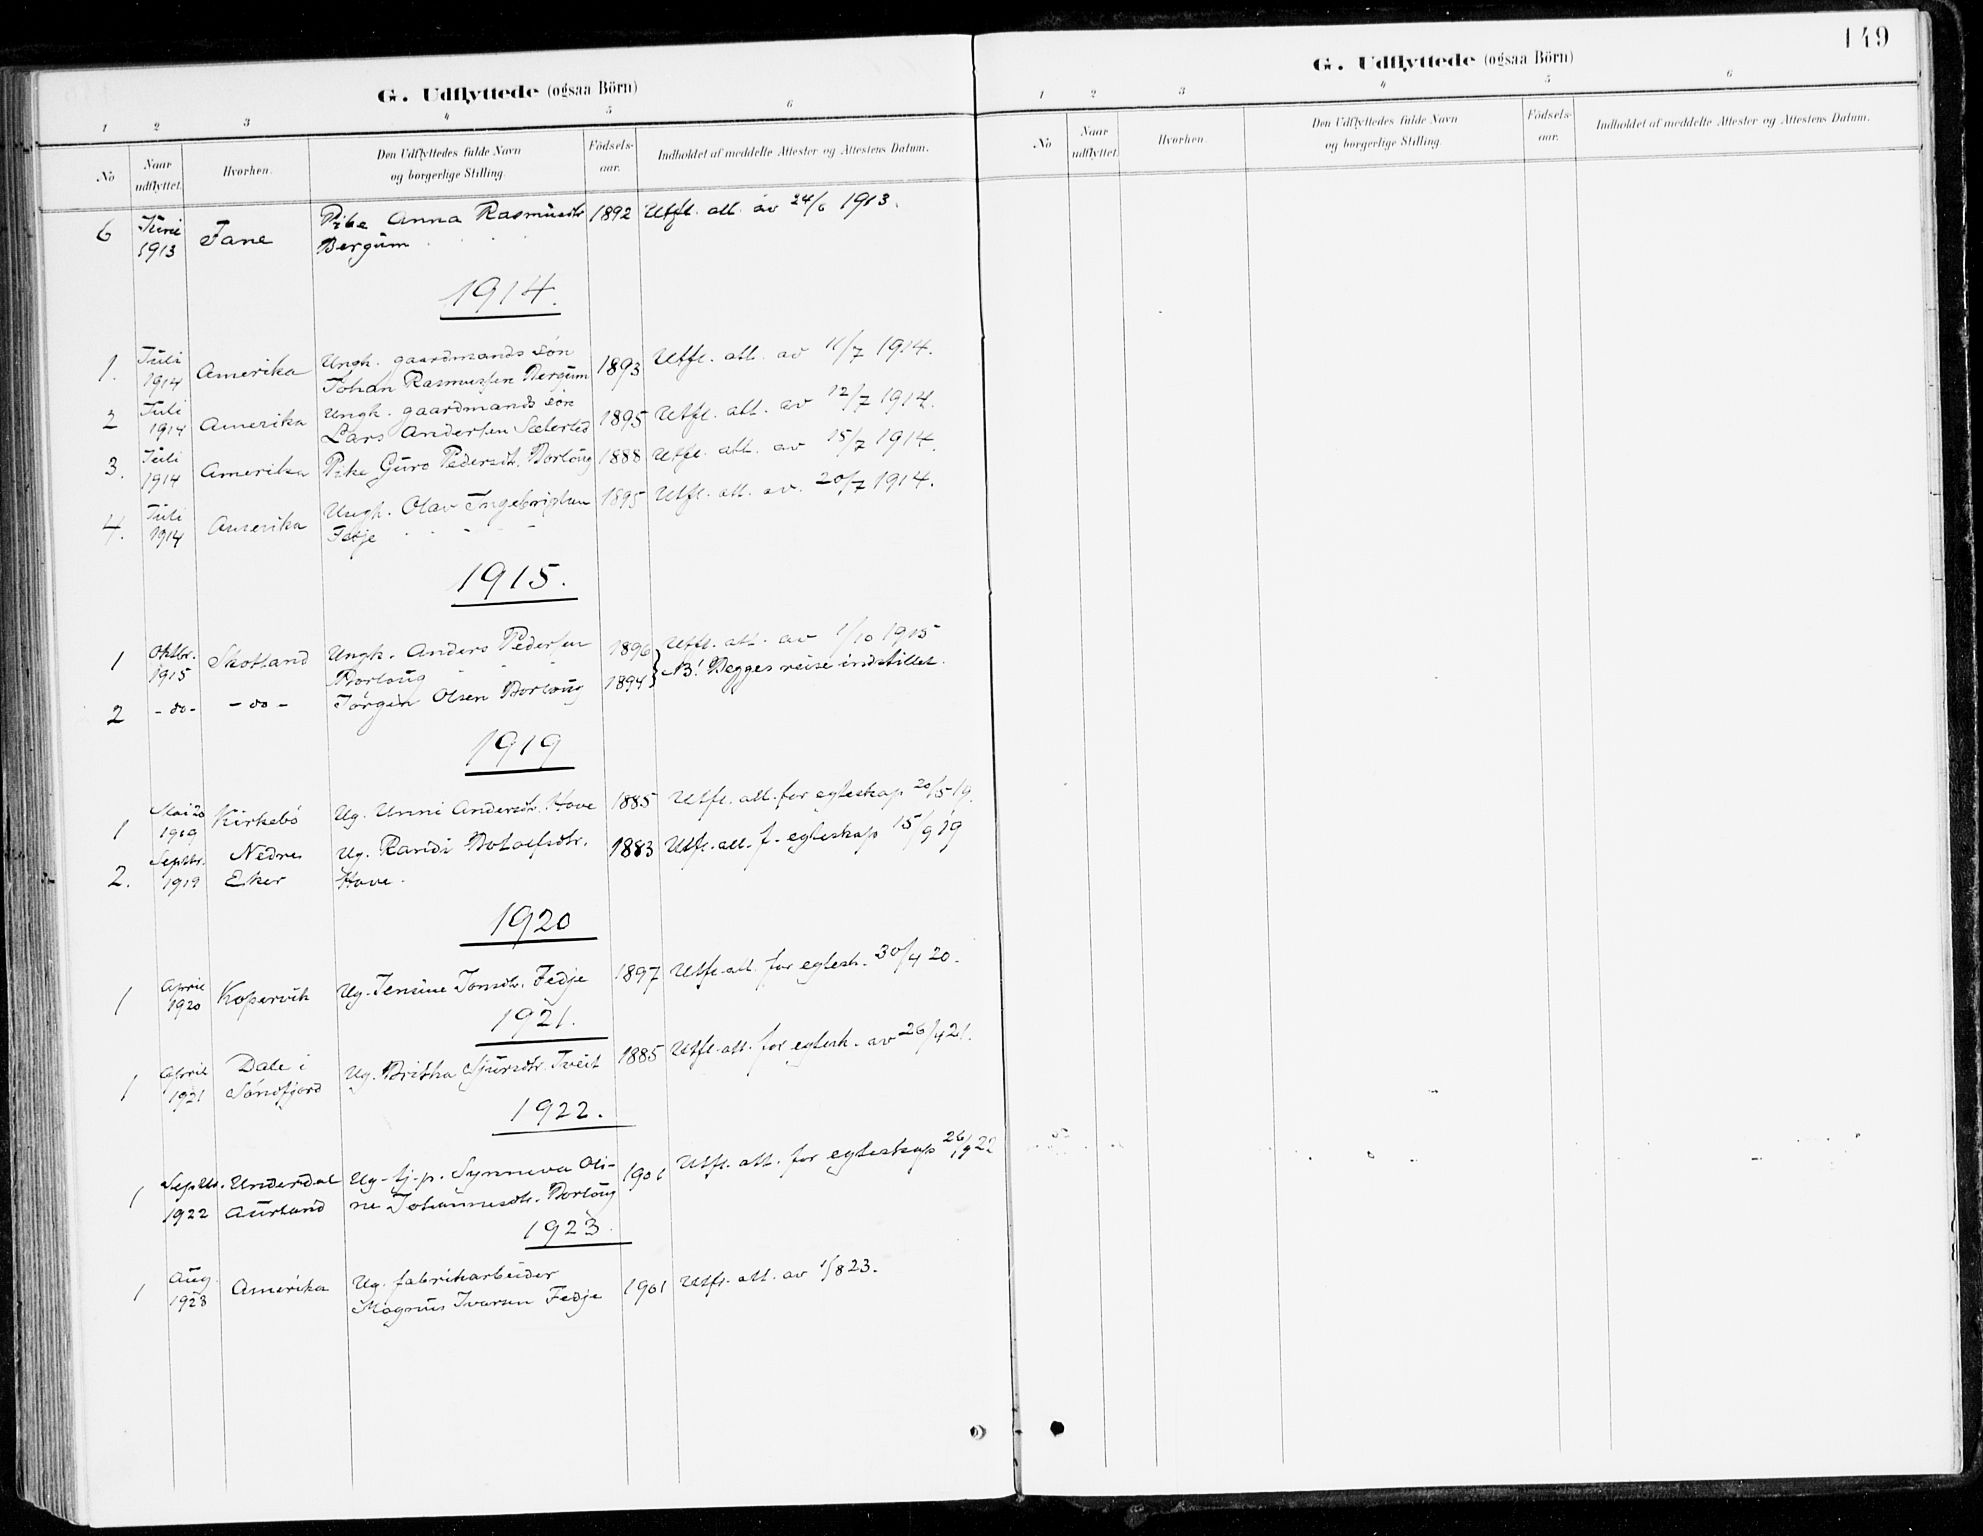 149
G. Udflyttede (ogsaa Börn)
1 2 3 4 5 6
No Naar udflyttet. Hvorhen. Den Udflyttedes fulde Navn og borgerlige Stilling. Födsels-aar. Indholdet af meddelte Attester og Attestens Datum.
6 Juni 1913 Fane Pike Anna Rasmusdtr 1892 Utfl. att. av 24/6 1913.
Bergum
1914.
1. Juli 1914 Amerika Ungk. gaardmands søn
Johan Rasmussen Bergum 1893 Utfl. att. av 11/7 1914.
2 Juli 1914 Amerika Ungk. gaardmands søn
Lars Andersen 1895 Utfl. att. av 12/7 1914.
3. Juli 1914 Amerika Pike Guro Pedersdt. Borlaug 1888 Utfl. att. av 15/7 1914.
4. Juli 1914 Amerika Ungk. Olav Ingebrigtsen 1895 Utfl. att. av. 20/7 1914.
Fedje
1915.
1 Oktbr. 1915 Skotland Ungk. Anders Pedersen 1896 Utfl. att. av 1/10 1915
Borlaug
2 - do - - do - Jørgen Olsen Borlaug 1894 NB! Begges reise indstillet.
1919
1 Mai 20 1919 Kirkebø Ug. Unni Andersdtr. Hove 1885 Utfl. att. for egteskap 20/5 19.
2. Septbr. 1919 Nedre Eker Ug. Randi Botolfsdtr. 1883 Utfl. att. f. egteskap 15/9 19
Hove.
1920
1 April 1920 Kopervik Ug. Jensine Jonsdtr. Fedje 1897 Utfl. att. for egtesk. 30/4 20.
1921.
1 April 1921 Dale i Søndfjord Ug. Britha Sjursdtr. Tveit 1885 Utfl. att. for egtesk. av 26/4 21.
1922.
1 Septbr. 1922 Underdal Aurland Ug. tj. p. Synneva Oli-
ne Johannesdtr. Borlaug 1901 Utfl. att. for egteskap 26/9 22
1923.
1 Aug. 1923 Amerika Ug. fabrikarbeider
Magnus Ivarsen Fedje 1901 Utfl. att. av 1/8 23.
G. Udflyttede (ogsaa Börn)
1 2 3 4 5 6
No Naar udflyttet. Hvorhen. Den Udflyttedes fulde Navn og borgerlige Stilling. Födsels-aar. Indholdet af meddelte Attester og Attestens Datum.